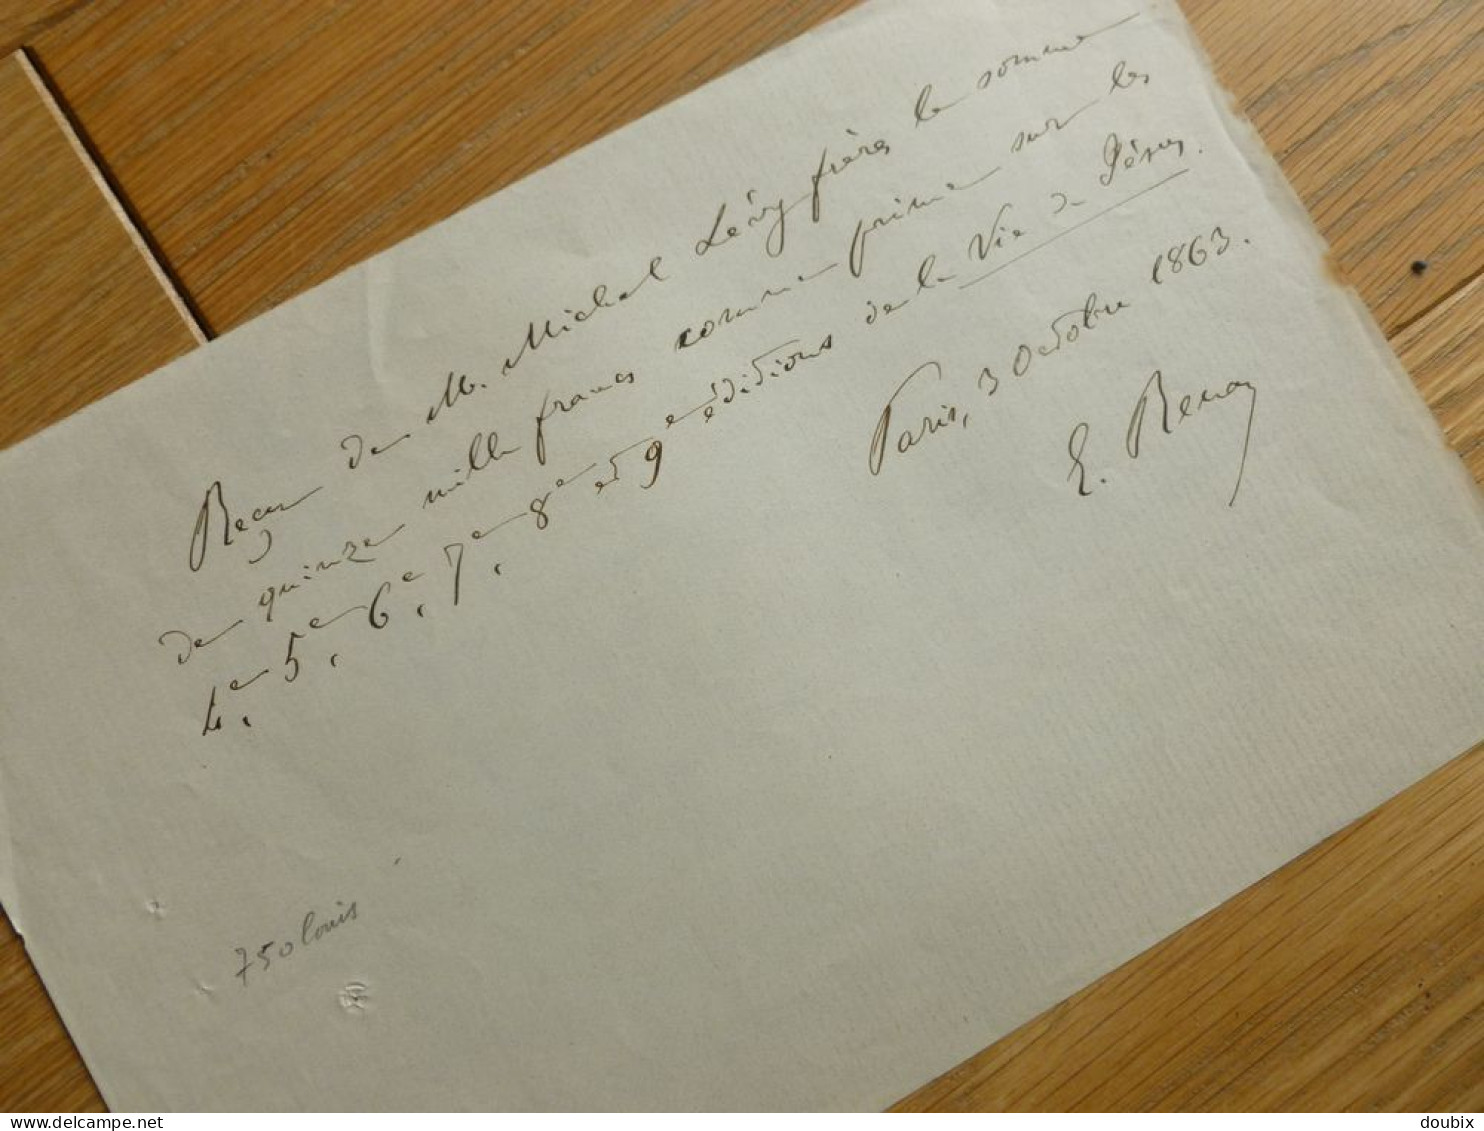 Reçu de M. Michel Lévy frères la somme
de quinze mille francs comme prime sur les
4e, 5e, 6e, 7e, 8e et 9e éditions de la Vie de Jésus.
Paris, 3 Octobre 1863.
E. Renan
750 louis
delcampe.net
doubix